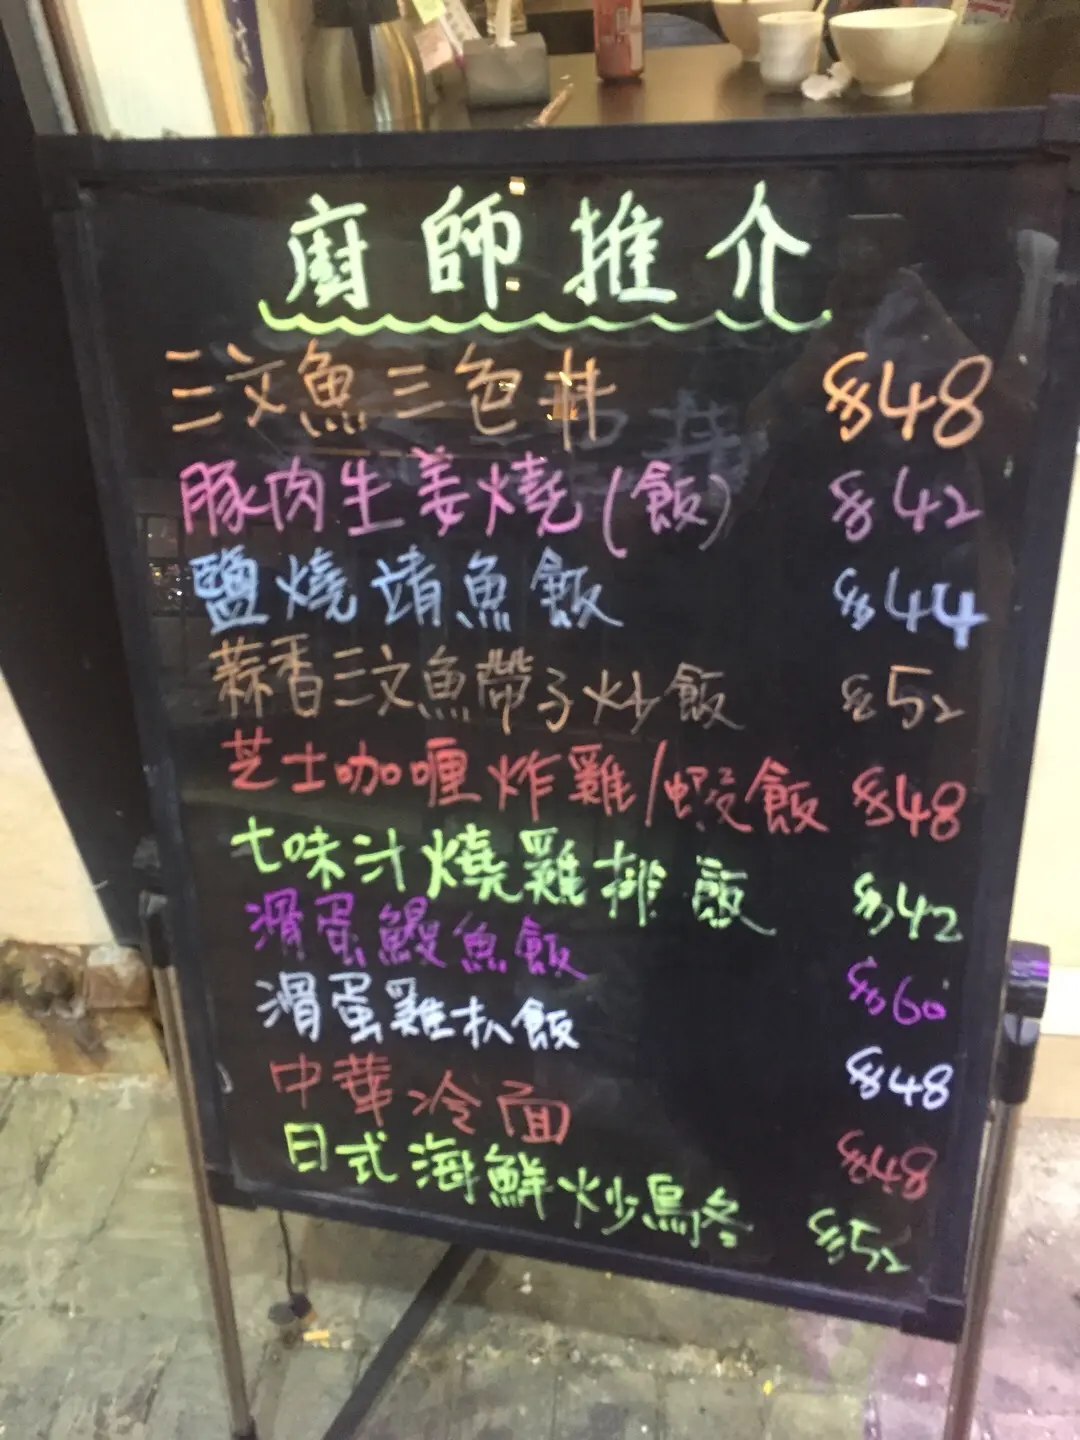 廚師推介
三文魚三色丼 $48
豚肉生姜燒(飯) $42
鹽燒靖魚飯 $44
蒜香三文魚帶子炒飯 $52
芝士咖喱炸雞/蝦飯 $48
七味汁燒雞排飯 $42
滑蛋鰻魚飯 $60
滑蛋雞扒飯 $48
中華冷面 $48
日式海鮮炒烏冬 $52